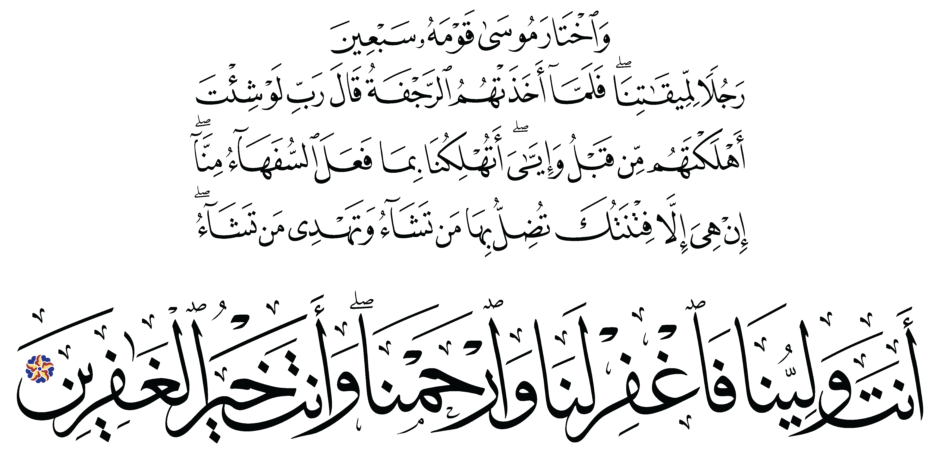 وَٱخْتَارَ مُوسَىٰ قَوْمَهُۥ سَبْعِينَ
رَجُلًا لِّمِيقَٰتِنَا ۖ فَلَمَّآ أَخَذَتْهُمُ ٱلرَّجْفَةُ قَالَ رَبِّ لَوْ شِئْتَ
أَهْلَكْتَهُم مِّن قَبْلُ وَإِيَّٰىَ ۖ أَتُهْلِكُنَا بِمَا فَعَلَ ٱلسُّفَهَآءُ مِنَّآ ۖ
إِنْ هِىَ إِلَّا فِتْنَتُكَ تُضِلُّ بِهَا مَن تَشَآءُ وَتَهْدِى مَن تَشَآءُ ۖ
أَنتَ وَلِيُّنَا فَٱغْفِرْ لَنَا وَٱرْحَمْنَا ۖ وَأَنتَ خَيْرُ ٱلْغَٰفِرِينَ